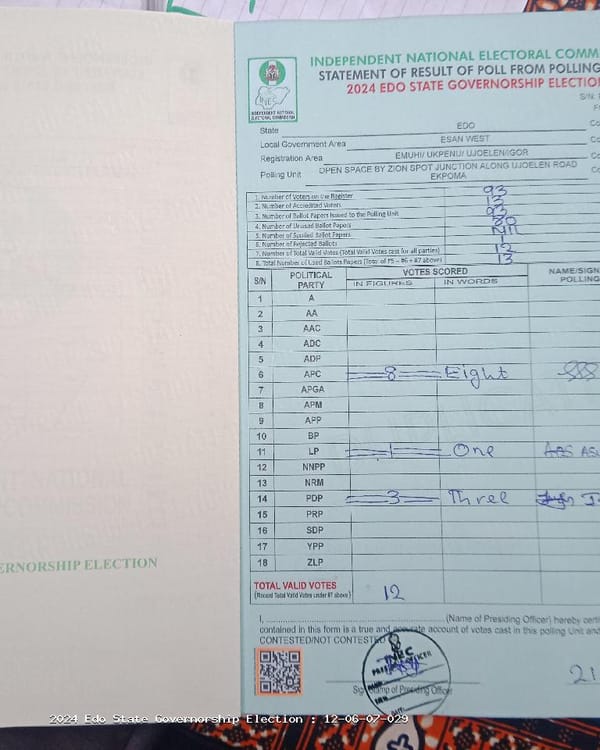 INDEPENDENT NATIONAL ELECTORAL COMM
STATEMENT OF RESULT OF POLL FROM POLLING
2024 EDO STATE GOVERNORSHIP ELECTIO
S/N:
INEC
INDEPENDENT NATIONAL
ELECTORAL COMMISSION
State EDO Co
Local Government Area ESAN WEST Co
Registration Area EMUHI/ UKPENU/ UJOELEN/IGOR Co
Polling Unit OPEN SPACE BY ZION SPOT JUNCTION ALONG UJOELEN ROAD Co
EKPOMA
1. Number of Voters on the Register 93
2. Number of Accredited Voters 13
3. Number of Ballot Papers Issued to the Polling Unit 93
4. Number of Unused Ballot Papers 80
5. Number of Spoiled Ballot Papers Nil
6. Number of Rejected Ballots 1
7. Number of Total Valid Votes (Total Valid Votes cast for all parties) 12
8. Total Number of Used Ballots Papers (Total of #5 + #6 + #7 above) 13
S/N POLITICAL PARTY VOTES SCORED NAME/SIGN
IN FIGURES IN WORDS POLLING
1 A
2 AA
3 AAC
4 ADC
5 ADP
6 APC 8 Eight
7 APGA
8 APM
9 APP
10 BP
11 LP 1 One
12 NNPP
13 NRM
14 PDP 3 Three
15 PRP
16 SDP
17 YPP
18 ZLP
TOTAL VALID VOTES 12
(Record Total Valid Votes under #7 above)
I, (Name of Presiding Officer) hereby certi
contained in this form is a true and accurate account of votes cast in this polling Unit and
CONTESTED/NOT CONTESTED
INEC
PRESIDING OFFICER
Sign Stamp of Presiding Officer
21
ERNORSHIP ELECTION
2024 Edo State Governorship Election : 12-06-07-029